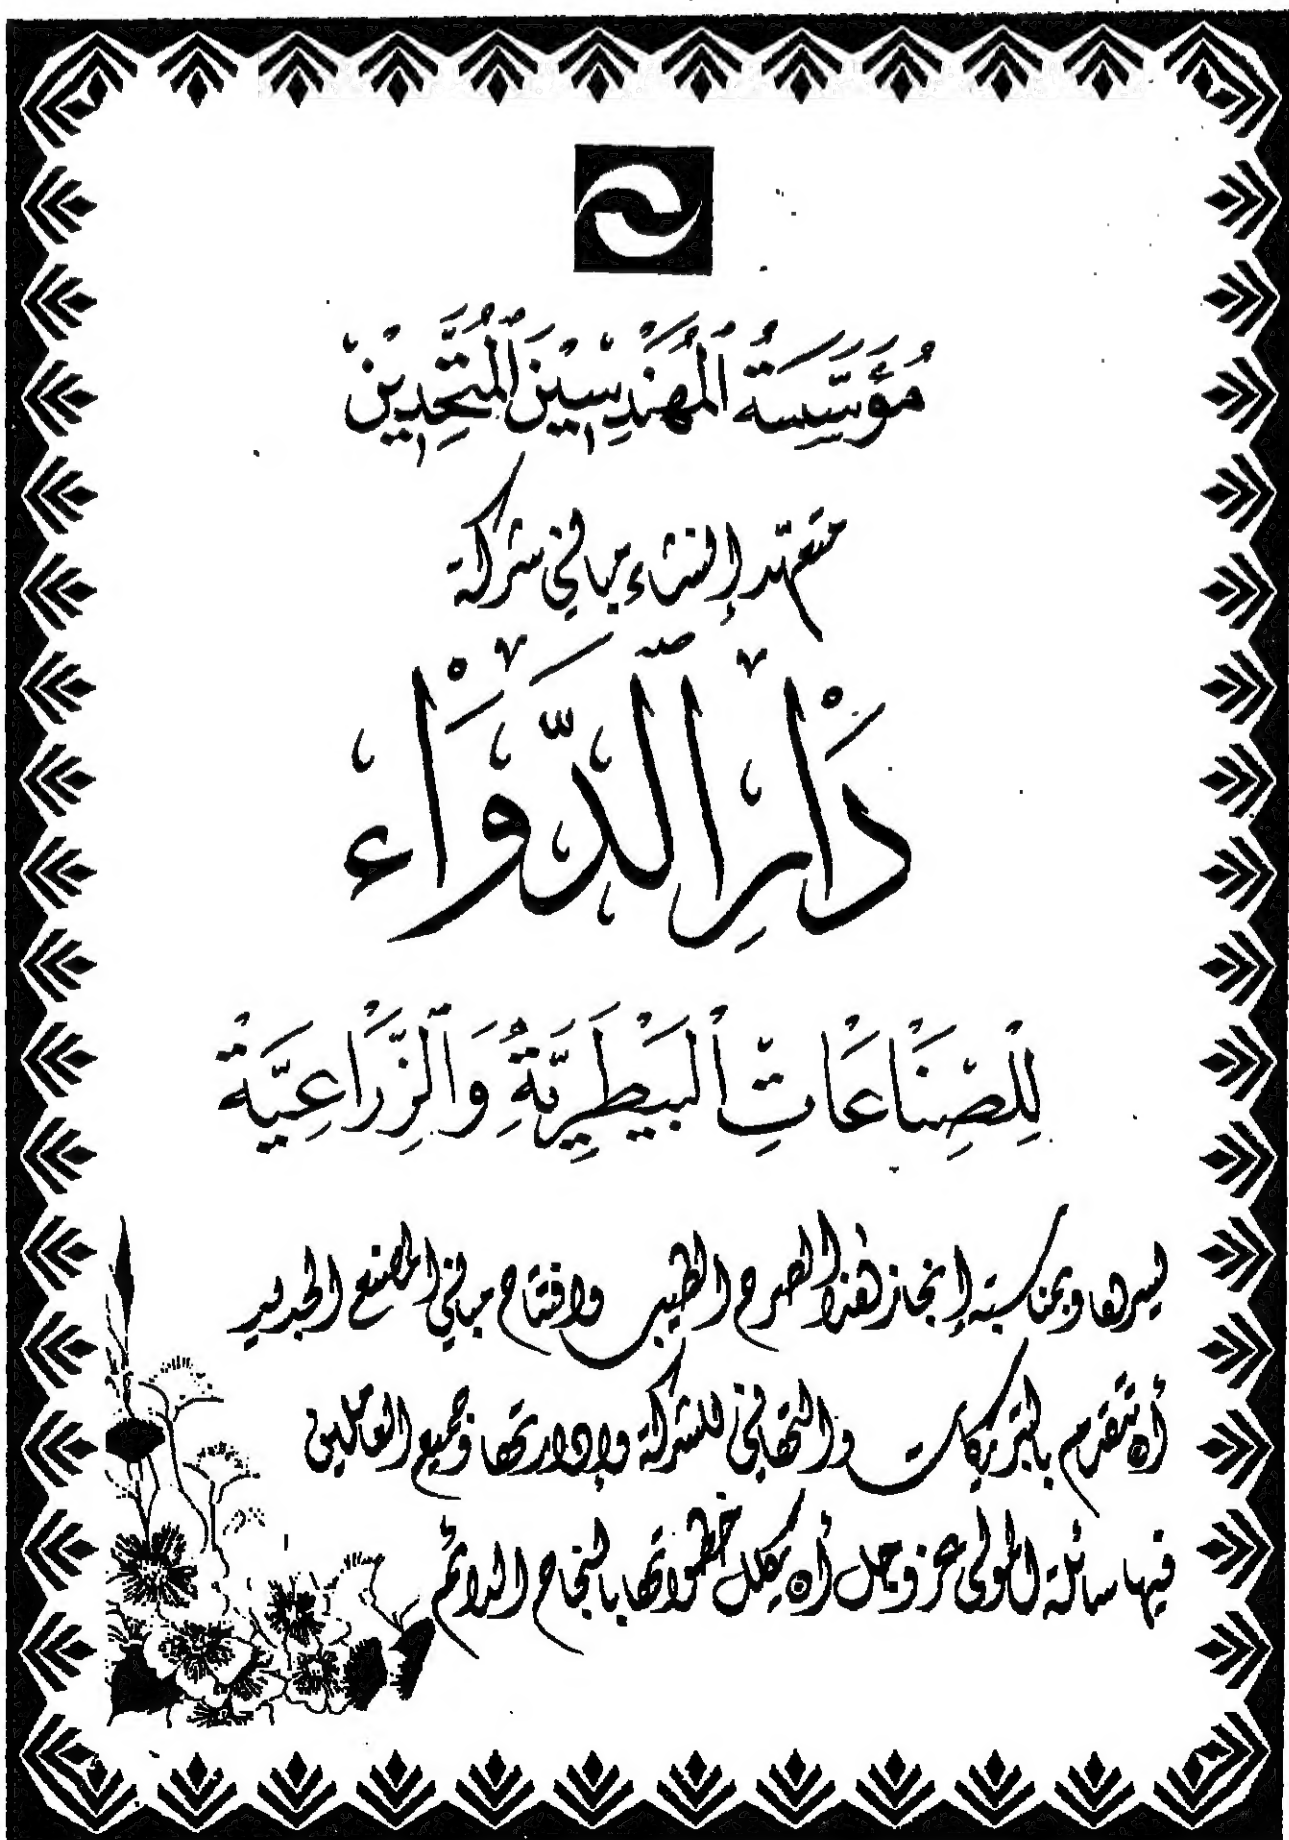 مُؤَسَّسَةُ الْمُهَنْدِسِينَ الْمُتَّحِدِينْ
متعهد إنشاء مباني شركة
دَارُ الدَّوَاءْ
لِلصِّنَاعَاتِ الْبَيْطَرِيَّةِ وَالزِّرَاعِيَّةْ
يسرها وبمناسبة إنجاز هذا الصرح الطيب وافتتاح مباني المصنع الجديد
أن تتقدم بالتبريكات والتهاني للشركة وإدارتها وجميع العاملين
فيها سائلة المولى عز وجل أن يكلل خطواتها بالنجاح الدائم